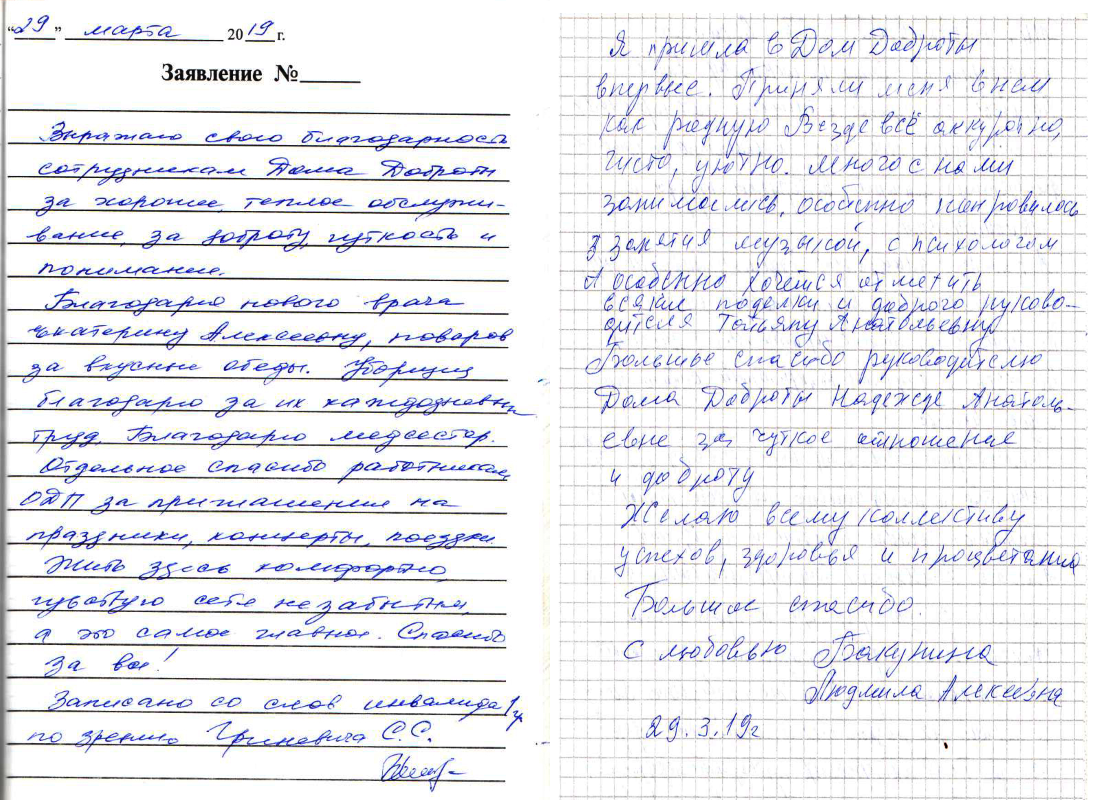 "29" марта 2019 г.
Заявление №
Выражаю свою благодарность
сотрудникам Дома Доброты
за хорошее, теплое обслужи-
вание, за доброту, чуткость и
понимание.
Благодарю нового врача
Екатерину Алексеевну, поваров
за вкусные обеды. Уборщиц
благодарю за их каждодневный
труд. Благодарю медсестер.
Отдельное спасибо работникам
ОДП за приглашения на
праздники, концерты, поездки.
Жить здесь комфортно,
чувствую себя незабытым,
а это самое главное. Спасибо
за все!
Записано со слов инвалида 1 гр
по зрению Гриневича С.С.
Я пришла в Дом Доброты
впервые. Приняли меня в нем
как родную Везде всё аккуратно,
чисто, уютно. Много с нами
занимались, особенно понравилось
занятия музыкой, с психологом
А особенно хочется отметить
всякие поделки и доброго руково-
дителя Татьяну Анатольевну
Большое спасибо руководителю
Дома Доброты Надежде Анатоль-
евне за чуткое отношение
и доброту
Желаю всему коллективу
успехов, здоровья и процветания
Большое спасибо.
С любовью Бакунина
Людмила Алексеевна
29.3.19г